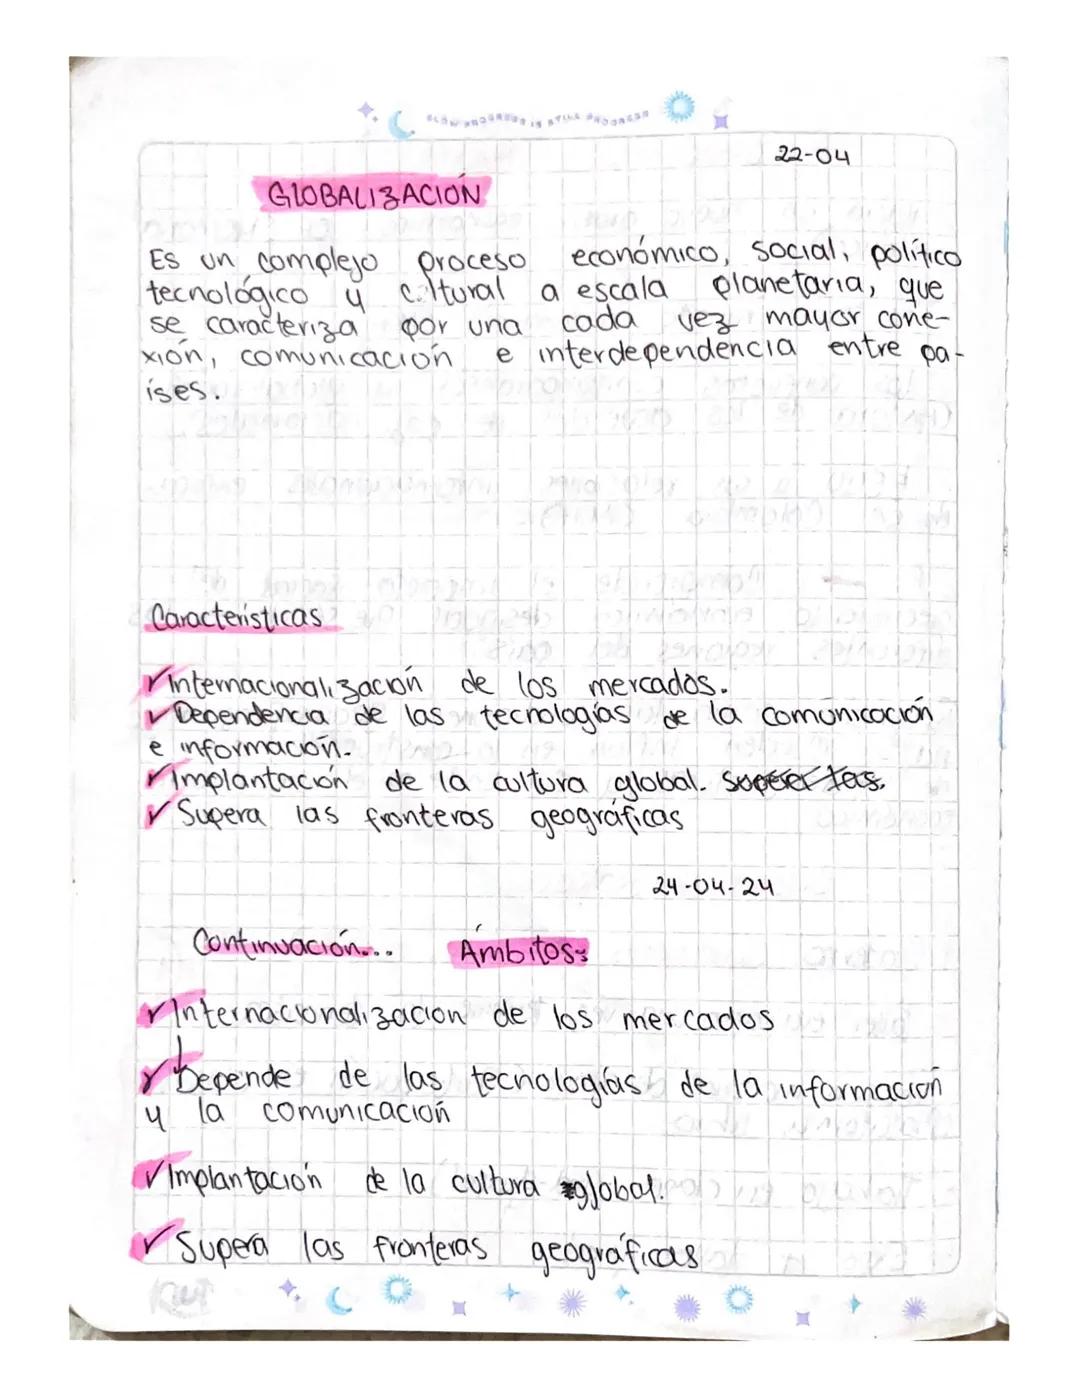 SLOW PROGRESS IS STILL PROGRESS
22-04
GLOBALIZACIÓN
Es un complejo proceso económico, social, político
tecnológico y cultural a escala planetaria, que
se caracteriza por una cada vez mayor cone-
xión, comunicación e interdependencia entre pa-
íses.
Características
✓Internacionalización de los mercados.
✓Dependencia de las tecnologías de la comunicación
e información.
✓Implantación de la cultura global.
✓Supera las fronteras geográficas
24-04-24
Continuación... Ámbitos:
✓Internacionalizacion de los mercados
✓Depende de las tecnologías de la información
y la comunicación
✓Implantación de la cultura global.
✓Supera las fronteras geográficas